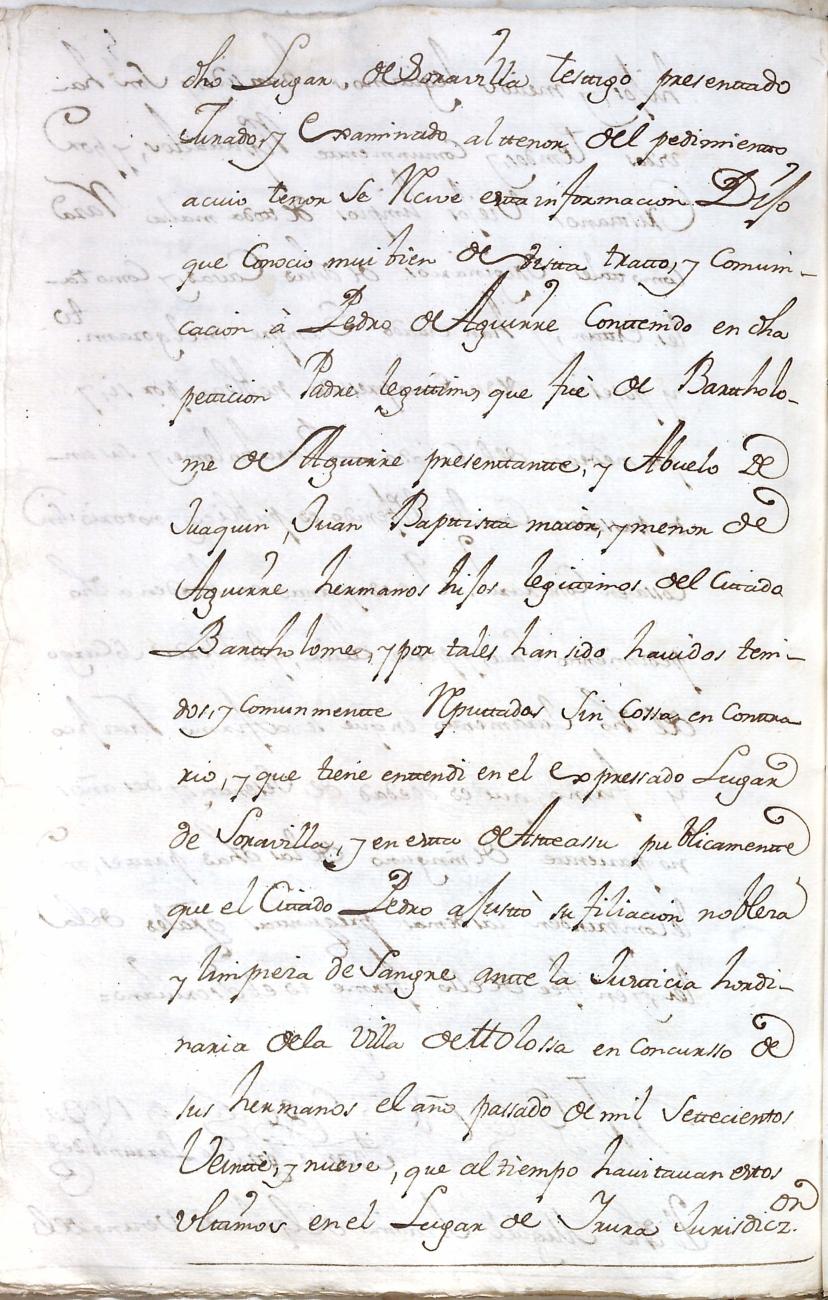 dho Lugar, de Soravilla testigo presenttado
Jurado, y Examinado al ttenor del pedimiento
acuio tenor se Rcive estta informacion Dijo
que Conocio mui bien de vistta tratto, y Comuni-
cacion à Pedro de Aguirre Conttenido en dha
petticion Padre legittimo, que fuè de Barttholo-
me de Aguirre presenttantte, y Abuelo de
Juaquin, Juan Bapttistta maiòr, y menor de
Aguirre hermanos hijos legittimos del Cittado
Barttholome, y por tales han sido havidos teni-
dos, y Comunmentte Rputtados sin Cossa en Contra
rio, y que tiene enttendi en el Expressado Lugar
de Soravilla, y en estta de Astteassu publicamentte
que el Cittado Pedro ajusttò su filiacion nobleza
y limpieza de Sangre antte la Justticia hordi-
naria dela Villa de ttolossa en Concursso de
sus hermanos el año passado de mil Settecientos
Veintte, y nueve, que al tiempo havitavan esttos
Vltimos en el Lugar de Yrura Jurisdicz.on